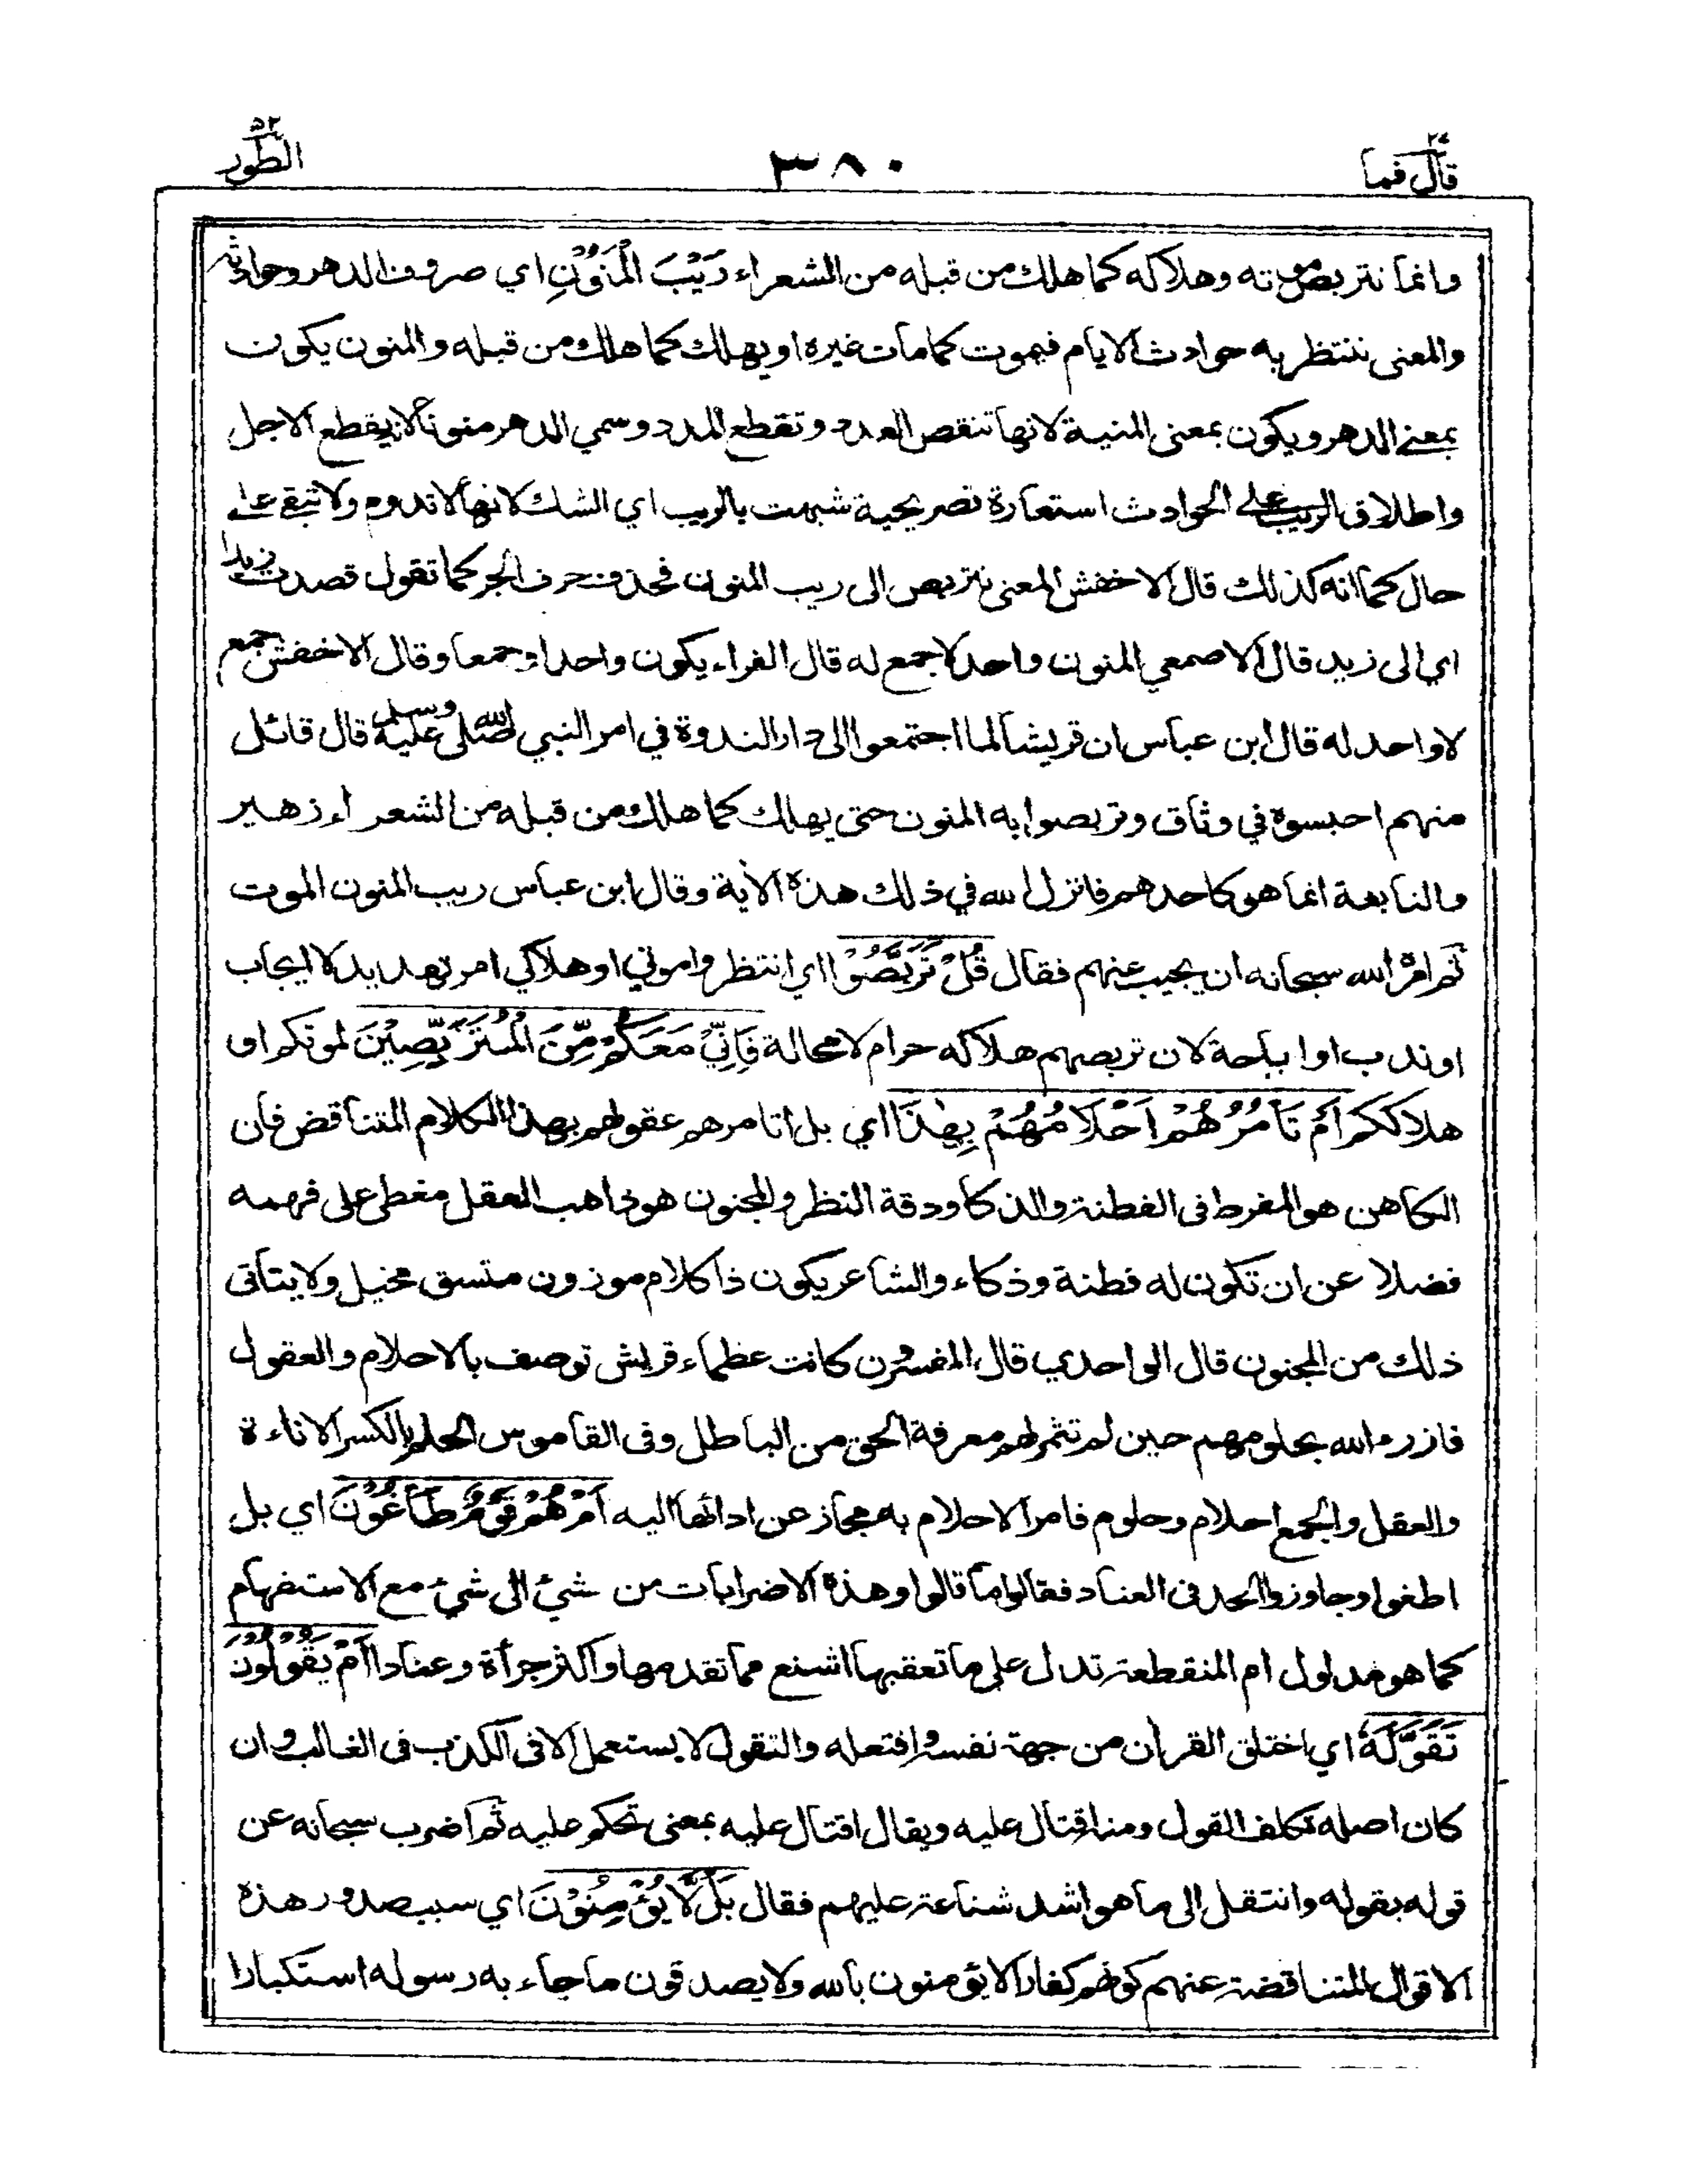 قال فما ٢٧
٣٨٠
الطور ٥٢
وانما نتربص موته وهلاكه كما هلك من قبله من الشعراء رَيْبَ الْمَنُوْنِ اي صروف الدهر وحوادثه
والمعنى ننتظر به حوادث الايام فيموت كما مات غيره او يهلك كما هلك من قبله والمنون يكون
بمعنى الدهر ويكون بمعنى المنية لانها تنقص العدد وتقطع المدد وسمي الدهر منونا لانه يقطع الاجل
واطلاق الريب على الحوادث استعارة تصريحية شبهت بالريب اي الشك لانها لا تدوم ولا تبقى على
حال كما انه كذلك قال الاخفش المعنى نتربص الى ريب المنون فحذف حرف الجر كما تقول قصدت زيدا
اي الى زيد قال الاصمعي المنون واحد لا جمع له قال الفراء يكون واحدا وجمعا وقال الاخفش جمع
لا واحد له قال ابن عباس ان قريشا لما اجتمعوا الى دار الندوة في امر النبي صلى الله عليه وسلم قال قائل
منهم احبسوه في وثاق وتربصوا به المنون حتى يهلك كما هلك من قبله من الشعراء زهير
والنابغة انما هو كاحدهم فانزل الله في ذلك هذه الآية وقال ابن عباس ريب المنون الموت
ثم امره الله سبحانه ان يجيب عنهم فقال قُلْ تَرَبَّصُوْا اي انتظروا موتي او هلاكي امر تهديد لا ايجاب
او ندب او اباحة لان تربصهم هلاكه حرام لا محالة فَاِنِّيْ مَعَكُمْ مِّنَ الْمُتَرَبِّصِيْنَ لموتكم او
هلاككم اَمْ تَأْمُرُهُمْ اَحْلَامُهُمْ بِهٰذَا اي بل اتامرهم عقولهم بهذا الكلام المتناقض فان
الكاهن هو المفرط في الفطنة والذكا ودقة النظر والمجنون هو ذاهب العقل مغطى على فهمه
فضلا عن ان تكون له فطنة وذكاء والشاعر يكون ذا كلام موزون متسق مخيل ولا يتأتى
ذلك من المجنون قال الواحدي قال المفسرون كانت عظماء قريش توصف بالاحلام والعقول
فازرء الله بحلومهم حين لم تثمر لهم معرفة الحق من الباطل وفى القاموس الحلم بالكسر الاناءة
والعقل والجمع احلام وحلوم فامر الاحلام به مجاز عن ادائها اليه اَمْ هُمْ قَوْمٌ طَاغُوْنَ اي بل
اطغوا وجاوزوا الحد فى العناد فقالوا ما قالوا وهذه الاضرابات من شيء الى شيء مع الاستفهام
كما هو مدلول ام المنقطعة تدل على ما تعقبها اشنع مما تقدمها واكثر جرأة وعنادا اَمْ يَقُوْلُوْنَ
تَقَوَّلَهٗ اي اختلق القرآن من جهة نفسه وافتعله والتقول لا يستعمل الا فى الكذب فى الغالب وان
كان اصله تكلف القول ومنه اقتال عليه ويقال اقتال عليه بمعنى تحكم عليه ثم اضرب سبحانه عن
قوله بقوله وانتقل الى ما هو اشد شناعة عليهم فقال بَلْ لَّا يُؤْمِنُوْنَ اي سبب صدور هذه
الاقوال المتناقضة عنهم كونهم كفارا لا يؤمنون بالله ولا يصدقون ما جاء به رسوله استكبارا